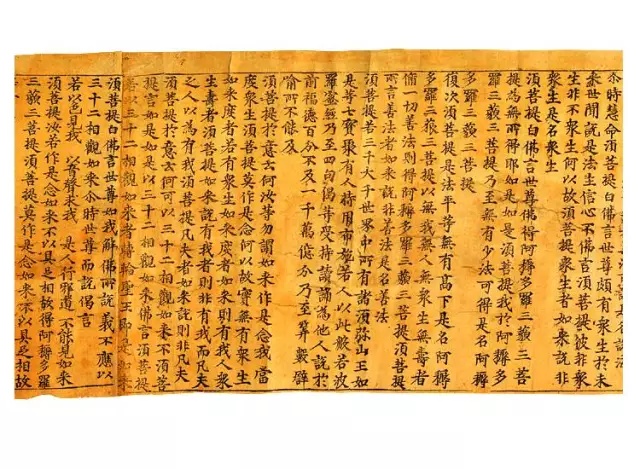 名說法
尒時慧命須菩提白佛言世尊頗有衆生於未
来世聞說是法生信心不佛言須菩提彼非衆
生非不衆生何以故須菩提衆生衆生者如来說非
衆生是名衆生
須菩提白佛言世尊佛得阿耨多羅三藐三菩
提為無所得耶如是如是須菩提我於阿耨多
羅三藐三菩提乃至無有少法可得是名阿耨
多羅三藐三菩提
復次須菩提是法平等無有髙下是名阿耨
多羅三藐三菩提以無我無人無衆生無壽者
俻一切善法則得阿耨多羅三藐三菩提須菩提
所言善法者如来說非善法是名善法
須菩提若三千大千世界中所有諸須弥山王如
是等七寶聚有人持用布施若人以此般若波
羅蜜經乃至四句偈等受持讀誦為他人說於
前福德百分不及一千萬億分乃至筭數譬
喻所不能及
須菩提於意云何汝等勿謂如来作是念我當
度衆生須菩提莫作是念何以故實無有衆生
如来度者若有衆生如来度者如来則有我人衆
生壽者須菩提如来說有我者則非有我而凡夫
之人以為有我須菩提凡夫者如来說則非凡夫
須菩提於意云何可以三十二相觀如来不須菩
提言如是如是以三十二相觀如来佛言須菩提
若以三十二相觀如来者轉輪聖王即是如来
須菩提白佛言世尊如我解佛所說義不應以
三十二相觀如来尒時世尊而說偈言
若以色見我 以音聲求我 是人行邪道 不能見如来
須菩提汝若作是念如来不以具足相故得阿耨多羅
三藐三菩提須菩提莫作是念如来不以具足相故